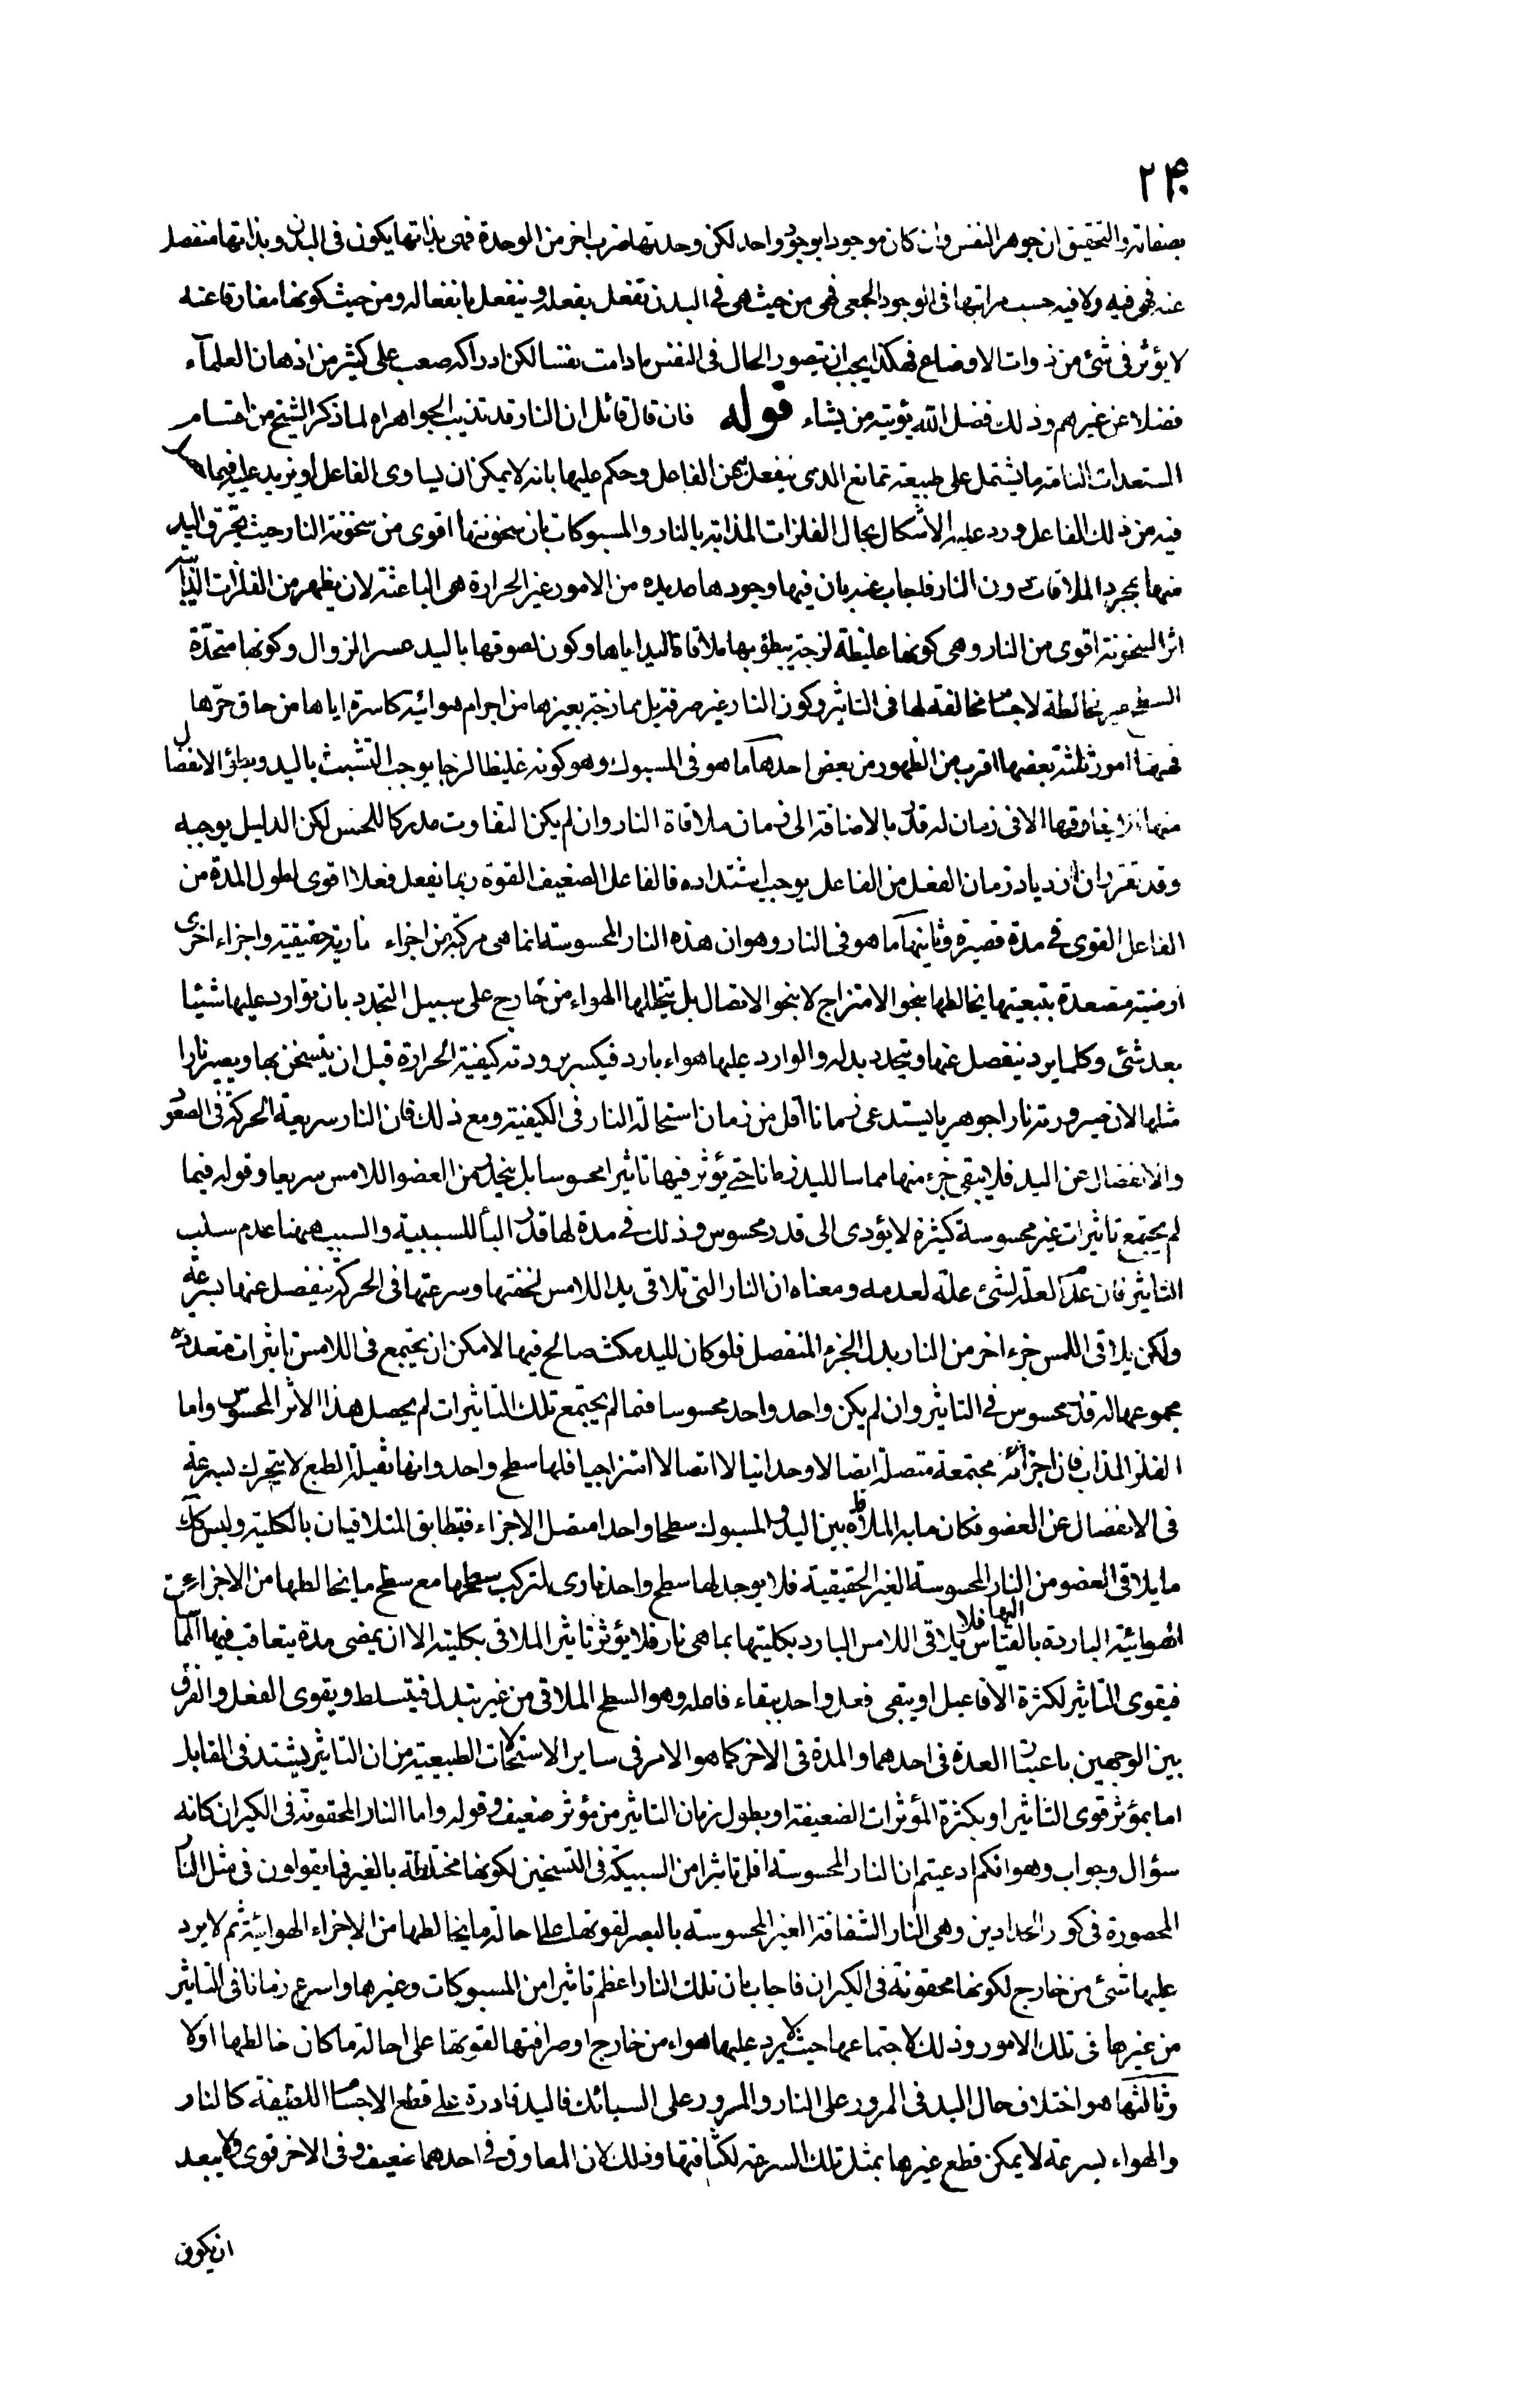 ۲۴۰
بصفاته والتحقيق ان جوهر النفس وان كان موجودا بوجود واحد لكن وحدتها ضرب اخر من الوحدة فهى بذاتها يكون فى البدن وبذاتها منفصل
عنه فهى فيه ولا فيه حسب مراتبها فى الوجود الجمعى فهى من حيث هى فى البدن تفعل بفعله وينفعل بانفعاله ومن حيث كونها مفارقا عنه
لا يؤثر فى شئ من ذوات الاوضاع فهكذا يجب ان يتصور الحال فى النفس ما دامت نفسا لكن ادراكه صعب على كثير من اذهان العلمآء
فضلا عن غيرهم وذلك فضل الله يؤتيه من يشاء قوله فان قال قائل ان النار قد تذيب الجواهر اه لما ذكر الشيخ من اقسام
المستعدات التامة ما يشتمل على طبيعته تمانع الذى ينفعل عن الفاعل وحكم عليها بانه لا يمكن ان يساوى الفاعل او يزيد عليه فيما
فيه من ذلك الفاعل ورد عليه الاشكال بحال الفلزات المذابة بالنار والمسبوكات بان سخونتها اقوى من سخونة النار حيث يحترق اليد
منها بمجرد الملاقات دون النار فاجاب عنه بان فيها وجوها عديده من الامور غير الحرارة هى الباعثة لان يظهر من الفلزات الذآئبة
اثر السخونة اقوى من النار وهى كونها غليظة لزجة يبطؤ بها ملاقاة اليد اياها وكون لصوقها باليد عسر الزوال وكونها متحدّة
السطح غير مخالطة لاجسام مخالفة لها فى التاثير وكون النار غير صرفة بل ممازجة بغيرها من اجرام هوائية كاسرة اياها من حاق حرّها
فههنا امور ثلثة بعضها اقرب من الظهور من بعض احدها ما هو فى المسبوك وهو كونه غليظا لزجا يوجب التشبث باليد وبطئ الانفصال
منها فلا يفارقها الا فى زمان له قدر بالاضافة الى زمان ملاقاة النار وان لم يكن التفاوت مدركا للحس لكن الدليل يوجبه
وقد تقرر ان ازدياد زمان الفعل من الفاعل يوجب اشتداده فالفاعل الضعيف القوة ربما يفعل فعلا اقوى لطول المدة من
الفاعل القوى فى مدة قصيرة وثانيها ما هو فى النار وهو ان هذه النار المحسوسة انما هى مركبة من اجزاء نارية حقيقية واجزاء اخرى
ارضية متصعدة بتبعيتها يخالطها بنحو الامتزاج لا بنحو الاتصال بل يتخللها الهواء من خارج على سبيل التجدد بان توارد عليها شيئا
بعد شئ وكلما يرد ينفصل عنها ويتجدد بدله والوارد عليها هواء بارد فيكسر برودته كيفية الحرارة قبل ان يتسخن بها ويصير نارا
مثلها لان صيرورته نارا جوهريا يستدعى زمانا اقل من زمان استحالة النار فى الكيفية ومع ذلك فان النار سريعة الحركة فى الصعود
والانفصال عن اليد فلا يبقى جزء منها مماسا لليد زمانا حتى يؤثر فيها تاثيرا محسوسا بل يتجدد من العضو اللامس سريعا وقوله فيما
لم يجتمع تاثيرات غير محسوسة كثيرة لا يؤدى الى قدر محسوس وذلك فى مدة لها قدر البأ للسببية والسبب ههنا عدم سلب
التاثير فان عدم العلة لشئ علة لعدمه ومعناه ان النار التى تلاقى يد اللامس لخفتها وسرعتها فى الحركة ينفصل عنها بسرعة
ولكن يلاقى اللمس جزء اخر من النار بدل الجزء المنفصل فلو كان لليد مكث صالح فيها لامكن ان يجتمع فى اللامس تاثيرات متعددة
مجموعها له قدر محسوس فى التاثير وان لم يكن واحد واحد محسوسا فما لم يجتمع تلك التاثيرات لم يحصل هذا الاثر المحسوس واما
الفلز المذاب فان اجزائه مجتمعة متصلة اتصالا وحدانيا لا اتصالا امتزاجيا فلها سطح واحد وانها ثقيلة الطبع لا يتحرك بسرعة
فى الانفصال عن العضو فكان ما به الملاقاة بين اليد والمسبوك سطحا واحدا متصل الاجزاء فتطابق المتلاقيان بالكلية وليس كك
ما يلاقى العضو من النار المحسوسة الغير الحقيقية فلا يوجد لها سطح واحد نارى لتركب سطحها مع سطح ما يخالطها من الاجزاء
الهوائية الباردة بالقياس اليها فلا يلاقى اللامس البارد بكليتها بما هى نار فلا يؤثر تاثير الملاقى بكليته الا ان يمضى مدة يتعاقب فيها
فيقوى التاثير لكثرة الافاعيل او يبقى فعل واحد ببقاء فاعله وهو السطح الملاقى من غير تبدل فيتسلط ويقوى الفعل والفرق
بين الوجهين باعتبار العدة فى احدهما والمدة فى الاخر كما هو الامر فى ساير الاستحالات الطبيعية من ان التاثير يشتد فى القابل
اما بمؤثر قوى التاثير او بكثرة المؤثرات الضعيفة او بطول زمان التاثير من مؤثر ضعيف وقوله واما النار المحقونة فى الكيران كانه
سؤال وجواب وهو انكم ادعيتم ان النار المحسوسة اقل تاثيرا من السبيكة فى التسخين لكونها مختلطة بالغير فما يقولون فى مثل النار
المحصورة فى كور الحدادين وهى النار الشفافة الغير المحسوسة بالبصر لقوتها على احالة ما يخالطها من الاجزاء الهوائية ثم لا يرد
عليها شئ من خارج لكونها محقونة فى الكيران فاجاب بان تلك النار اعظم تاثيرا من المسبوكات وغيرها واسرع زمانا فى التاثير
من غيرها فى تلك الامور وذلك لاجتماعها حيث لا يرد عليها هواء من خارج او صرافتها لقوتها على احالة ما كان خالطها اولا
وثالثها هو اختلاف حال اليد فى المرور على النار والمرور على السبائك فاليد قادرة على قطع الاجسام اللطيفة كالنار
والهواء بسرعة لا يمكن قطع غيرها بمثل تلك السرعة لكثافتها وذلك لان المعاوق فى احدهما ضعيف وفى الاخر قوى ولا يبعد
ان يكون